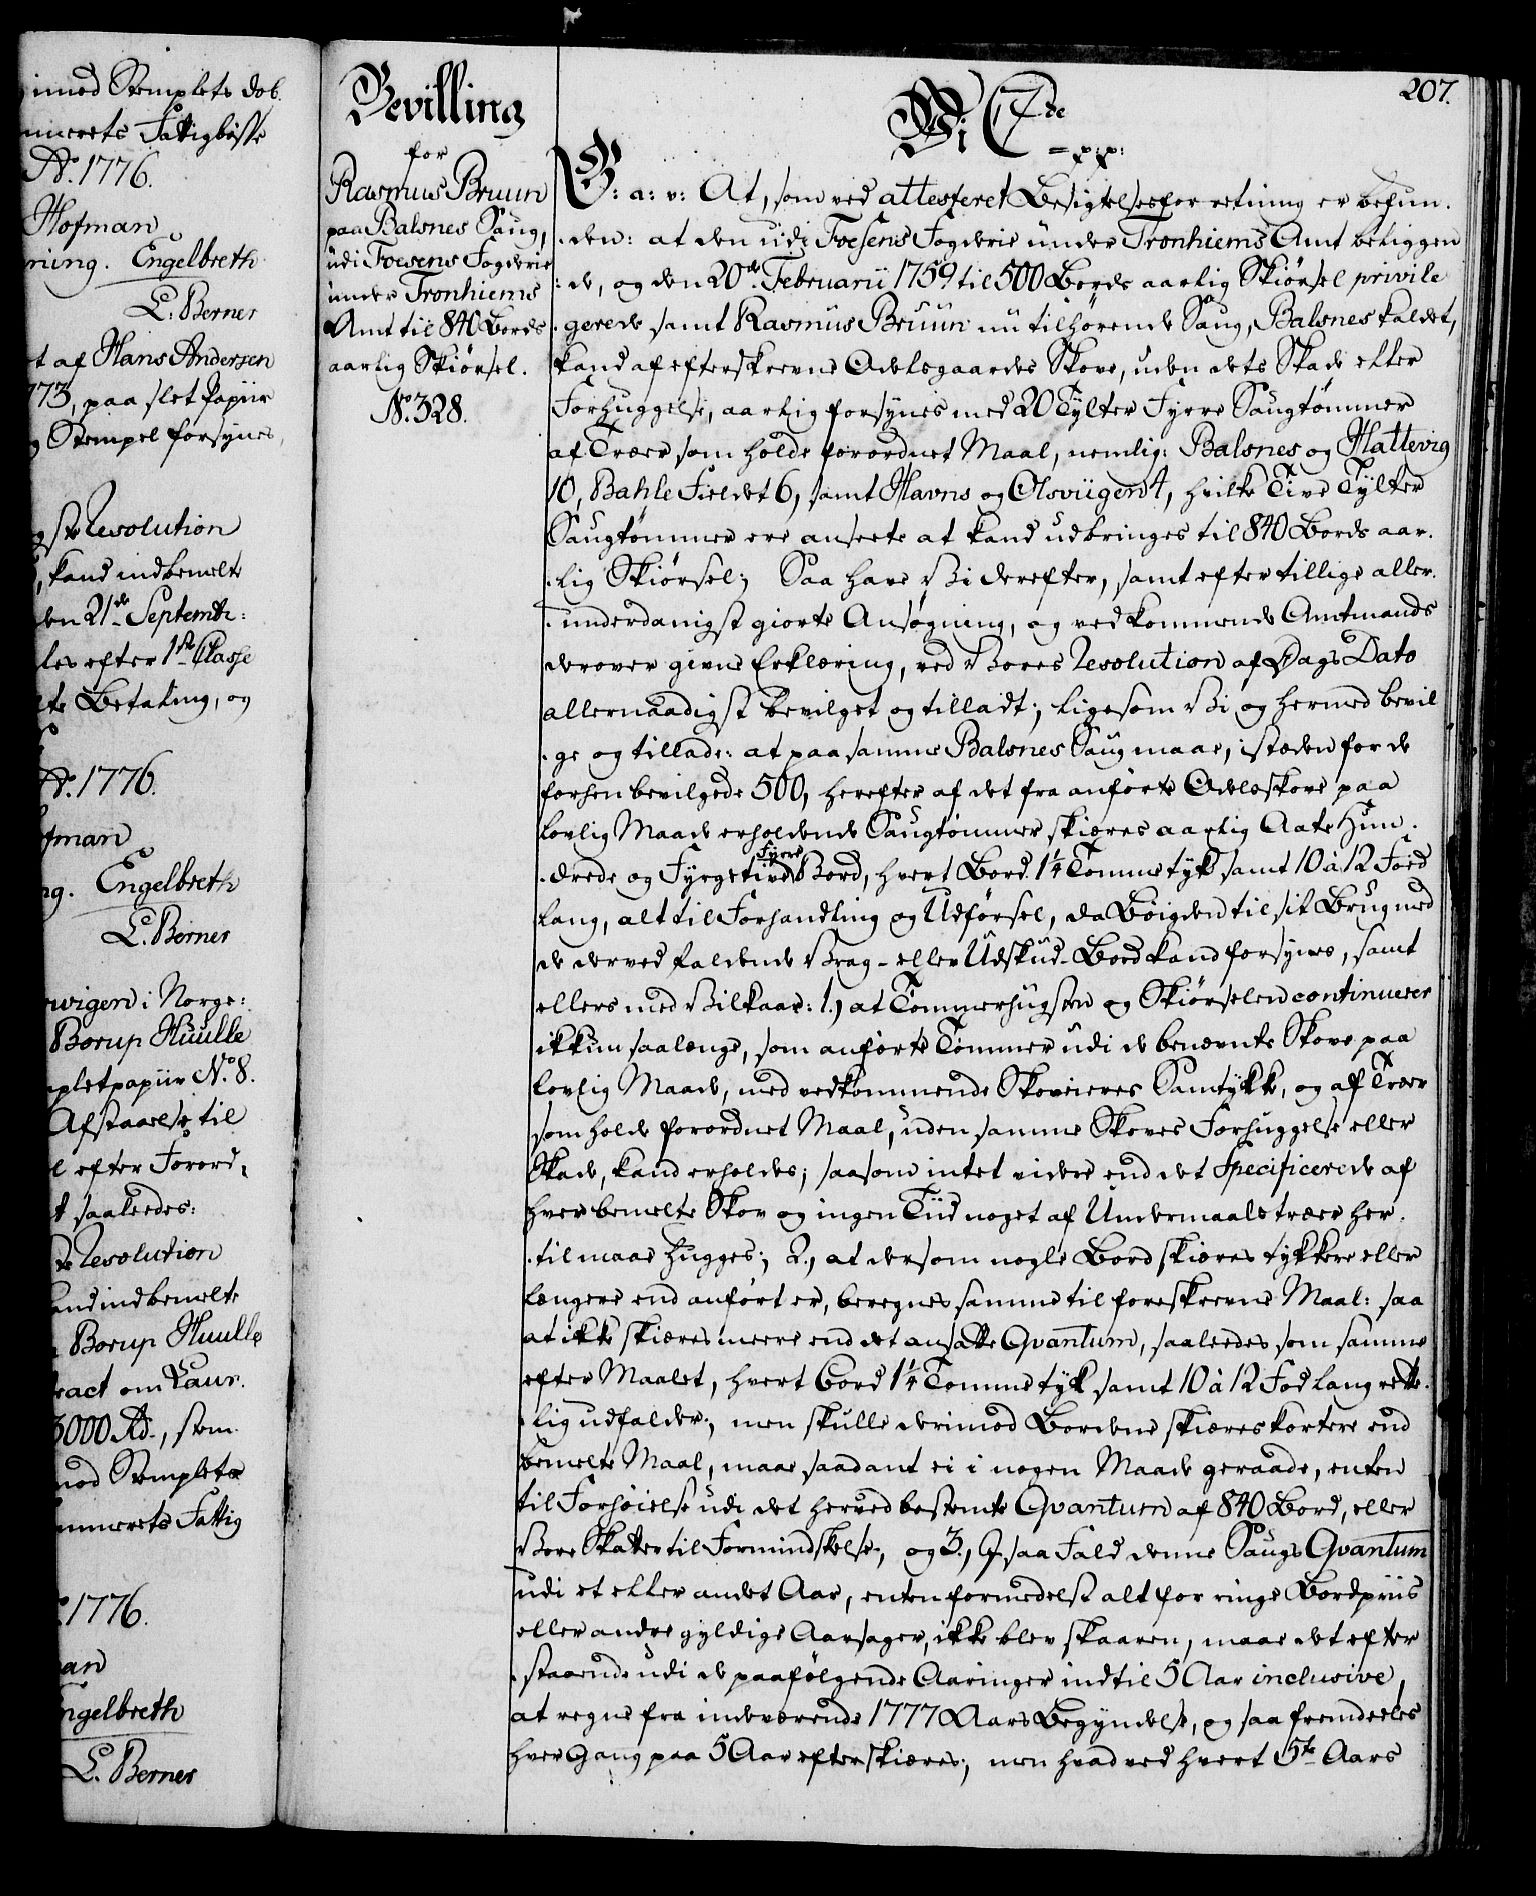 imod Stemplets dob.
merets Fattigbösse
Ao. 1776.
Hofman
ning. Engelbreth
L. Berner
t af Hans Andersen
773, paa slet Papiir
g Stempel forsynes,
gste Resolution
, kand indbemelte
den 21de Septembr:
les efter 1ste Classe
te Betaling, og
Ao. 1776.
fman
ng. Engelbreth
L. Berner
rwigen i Norge:
Borup Huulle
mpletpapiir No. 8.
Afstaaelse til
l efter Forord,
t saaledes:
te Resolution
and indbemelte
Borup Huulle
tract om Laur.
3000 Rd., som
mod Stemplets
mmerets Fattig
1776.
an
ngelbreth
L. Berner
Bevilling
for
Rasmus Bruun
paa Balsnes Saug,
udi Foesens Fogderie
under Tronhiems
Amt til 840 Bords
aarlig Skiørsel.
No. 328.
207.
Vi C 7de
= pp:
G: a: v: At, som ved attesteret Besigtelsesforretning er befun-
-den: at den udi Foesens Fogderie under Tronhiems Amt beliggen
-de, og den 20de Februarii 1759 til 500 Bords aarlig Skiørsel privile
-gerede samt Rasmus Bruun nu tilhørende Saug, Balsnes kaldet,
kand af efterskrevne Odelsgaardes Skove, uden dets Skade eller
Forhuggelse, aarlig forsynes med 20 Tylter Fyrre Saugtømmer
af Træer som holde forordnet Maal, nemlig: Balsnes og Hattevig
10, Bahle Fieldet 6, samt Havns og Olsviigen 4, hvilke Tive Tylter
Saugtømmer ere anseete at kand udbringes til 840 Bords aar-
-lig Skiørsel; Saa have Vi derefter, samt efter tillige aller-
-underdanigst giorte Ansøgning, og vedkommende Amtmands
derover givne Erklæring, ved Vores Resolution af Dags Dato
allernaadigst bevilget og tilladt; ligesom Vi og hermed bevil
-ge og tillade: at paa samme Balsnes Saug maae, isteden for de
forhen bevilgede 500, herefter af det fra anførte Odelsskove paa
lovlig Maade erholdende Saugtømmer skiæres aarlig Aate Hun-
-drede og Fyrgetive Fyrre Bord, hvert Bord 1 1/4 Tomme tyk samt 10 à 12 Foed
lang, alt til Forhandling og Udførsel, da Bøigden til sit Brug med
de derved faldende Vrag- eller Udskud-Bord kand forsynes, samt
ellers med Vilkaar: 1.) at Tømmerhugsten og Skiørselen continuerer
ikkun saalænge, som anførte Tømmer udi de benævnte Skove paa
lovlig Maade, med vedkommende Skoveieres Samtykke, og af Træer
som holde forordnet Maal, uden samme Skoves Forhuggelse eller
Skade, kand erholdes; saasom intet videre end det Specificerede af
hver bemelte Skov og ingen Tiid noget af Undermaals træer her-
-til maae hugges; 2., at dersom nogle Bord skiæres tykkere eller
længere end anført er, beregnes samme til foreskrevne Maal: saa
at ikke skiæres meere end det ansatte Qvantum, saaledes som samme
efter Maalet, hvert Bord 1 1/4 Tomme tyk samt 10 à 12 Fod lang rette-
-lig udfalder; men skulle derimod Bordene skiæres kortere end
bemelte Maal, maae saadant ei i nogen Maade geraade, enten
til Forhøielse udi det herved bestemte Qvantum af 840 Bord, eller
Vore Skatter til Formindskelse; og 3., I saa Fald denne Saugs Qvantum
udi et eller andet Aar, enten formedelst alt for ringe Bordpriis
eller andre gyldige Aarsager, ikke blev skaaren, maae det efter
-staaende udi de paafølgende Aaringer indtil 5 Aar inclusive,
at regne fra indeværende 1777 Aars Begyndelse, og saa fremdeeles
hver Gang paa 5 Aar efterskiæres; men hvad ved hvert 5te Aars